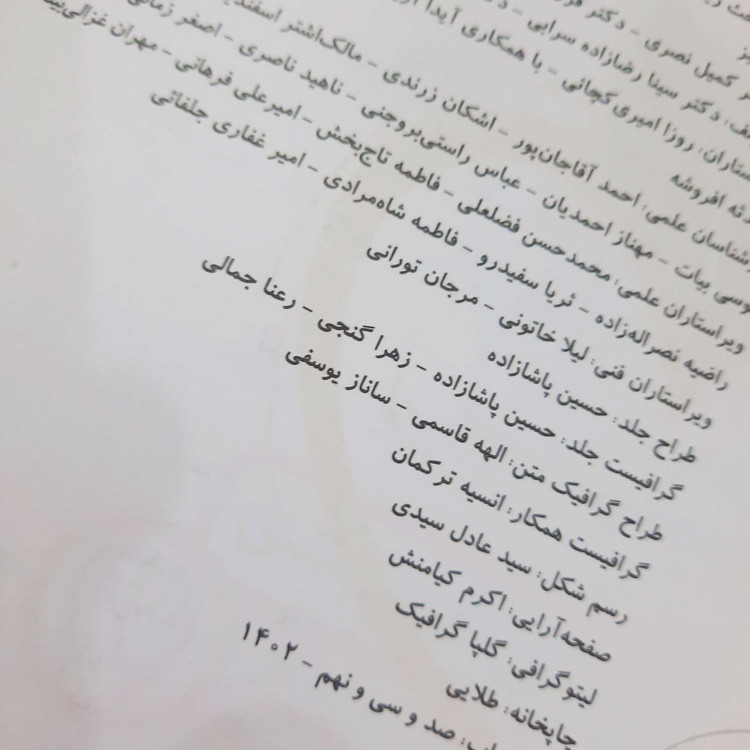 کمیل نصری - دکتر
دکتر سینا رضازاده سرابی -
روزا امیری کچائی - با همکاری آیدا
افروشه
علمی: احمد آقاجان‌پور - اشکان زرندی - مالک‌اشتر
بیات - مهناز احمدیان - عباس راستی‌بروجنی - ناهید ناصری - اصغر زمانی
ویراستاران علمی: محمدحسن فضلعلی - فاطمه تاج‌بخش - امیرعلی فرهانی - مهران
راضیه نصراله‌زاده - ثریا سفیدرو - فاطمه شاه‌مرادی - امیر غفاری جلفائی
ویراستاران فنی: لیلا خاتونی - مرجان تورانی
طراح جلد: حسین پاشازاده
گرافیست جلد: حسین پاشازاده - زهرا گنجی - رعنا جمالی
طراح گرافیک متن: الهه قاسمی - ساناز یوسفی
گرافیست همکار: انسیه ترکمان
رسم شکل: سید عادل سیدی
صفحه‌آرایی: اکرم کیامنش
لیتوگرافی: گلپا گرافیک
چاپخانه: طلایی
صد و سی و نهم - ۱۴۰۲